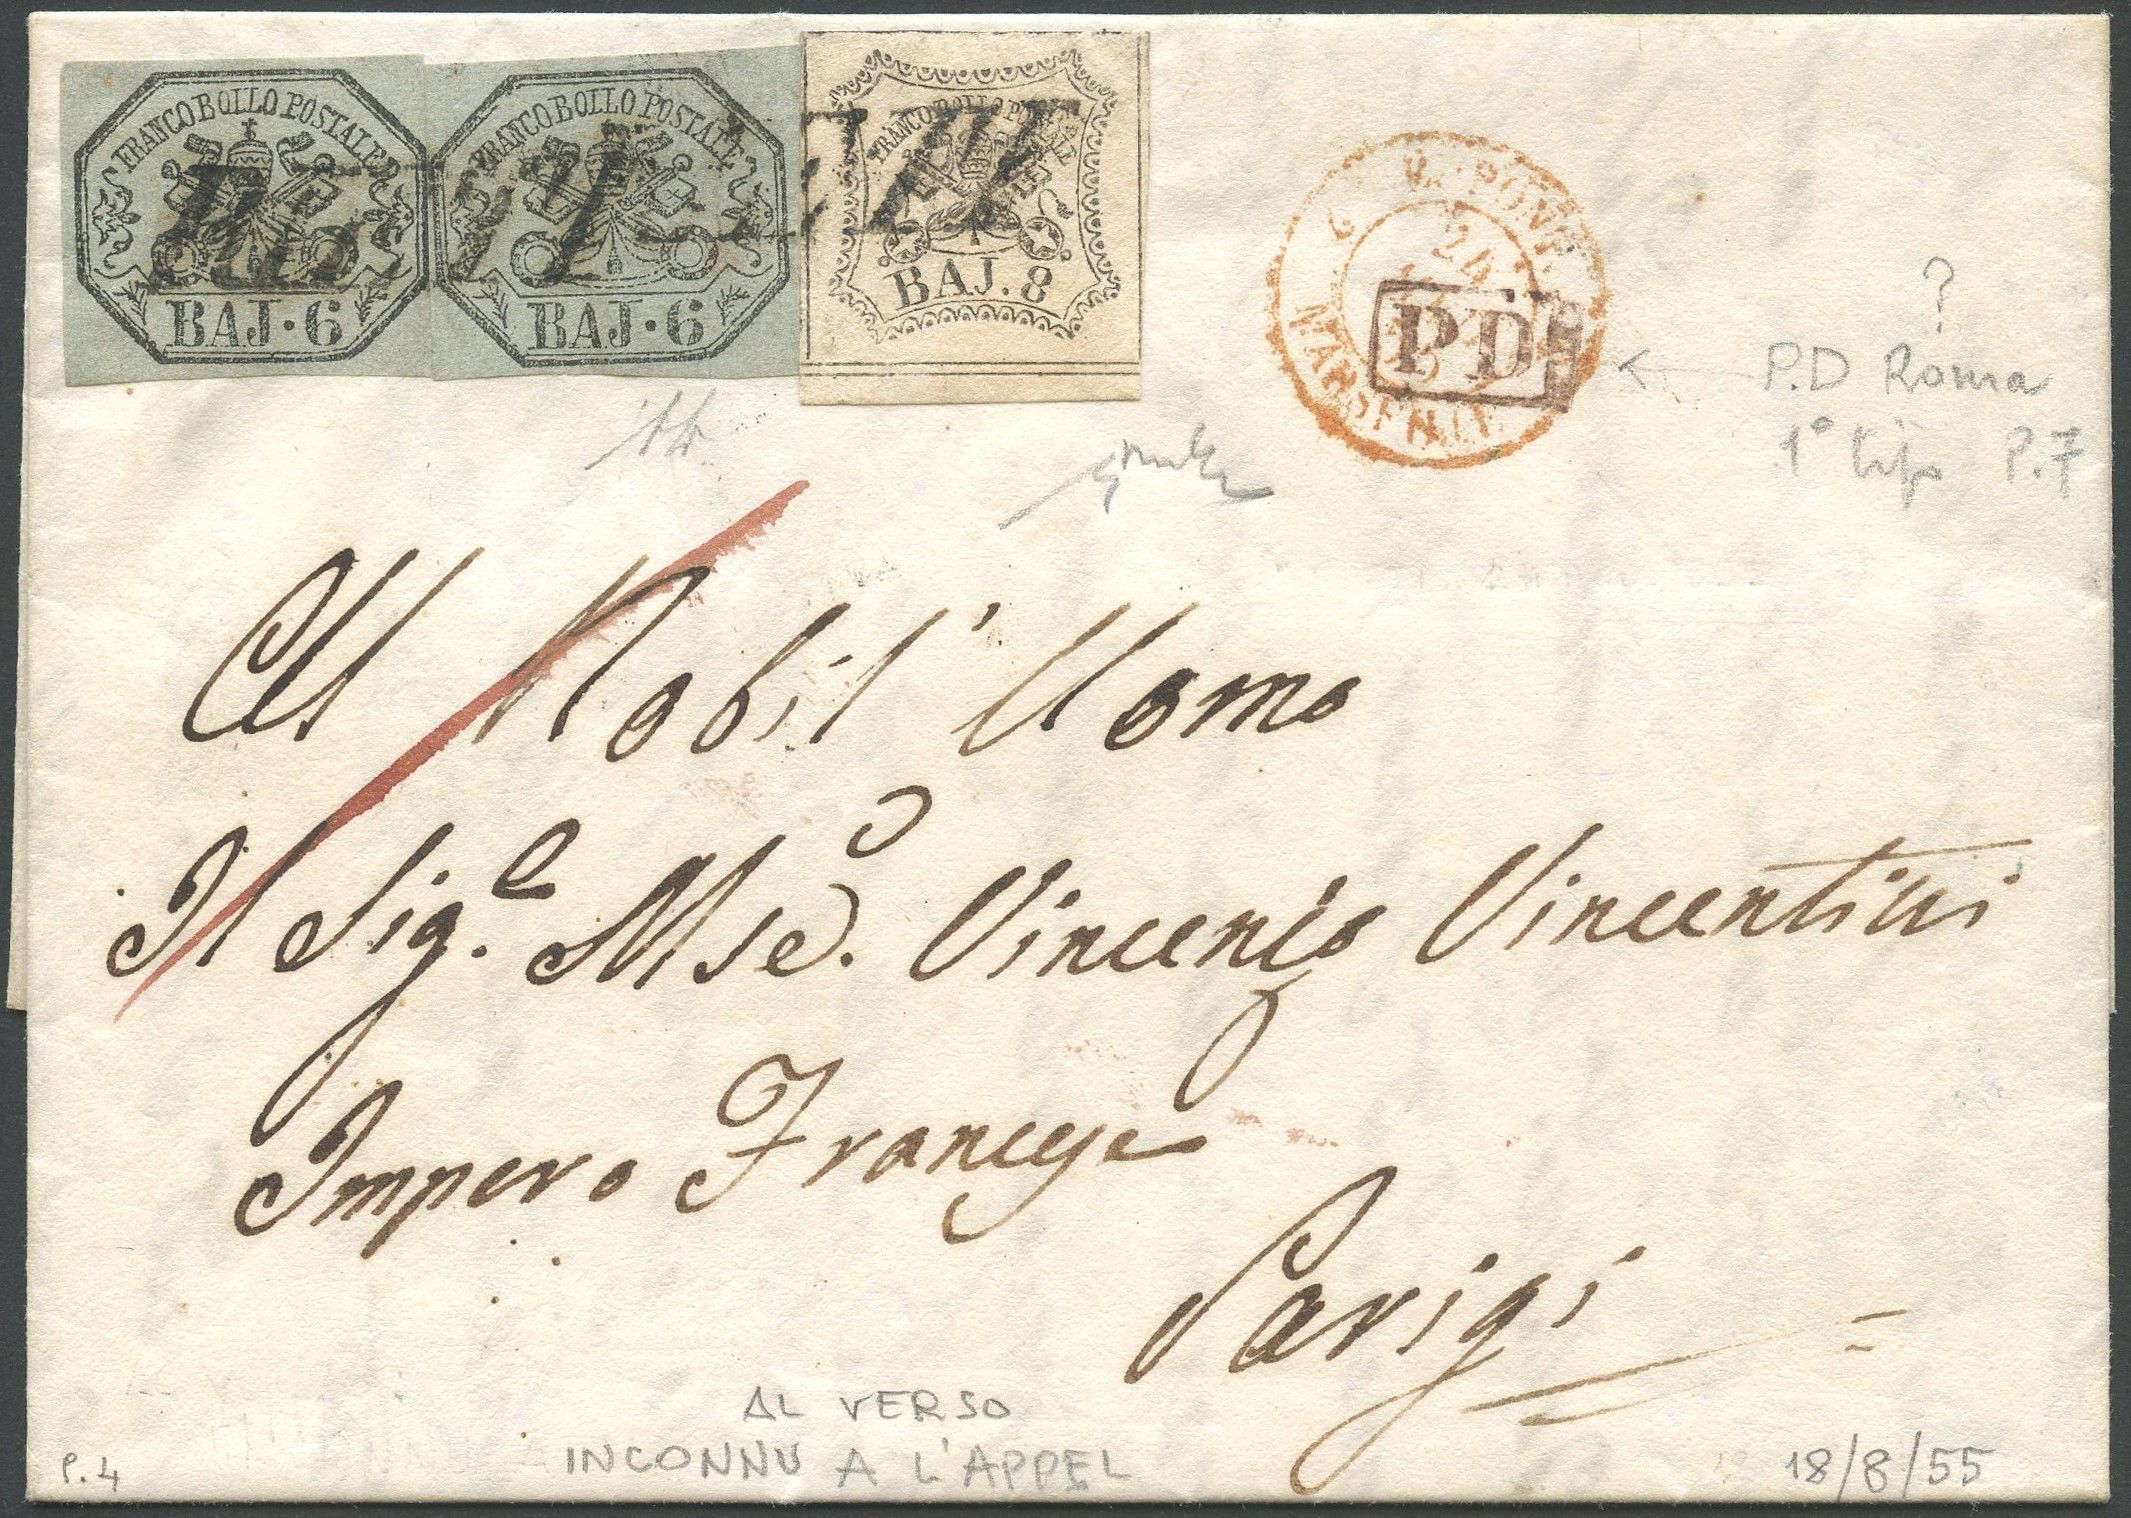 FRANCO BOLLO POSTALE
BAJ·6
FRANCO BOLLO POSTALE
BAJ·6
FRANCO BOLLO POSTALE
BAJ. 8
E. PONT.
24
MARSEILLE
P D
?
P.D Roma
1° tipo P.7
Al Nobil' Uomo
Il Sig.e Mse. Vincenzo Vincentini
Impero Francese
Parigi
AL VERSO
INCONNU A L'APPEL
P.4
18/8/55